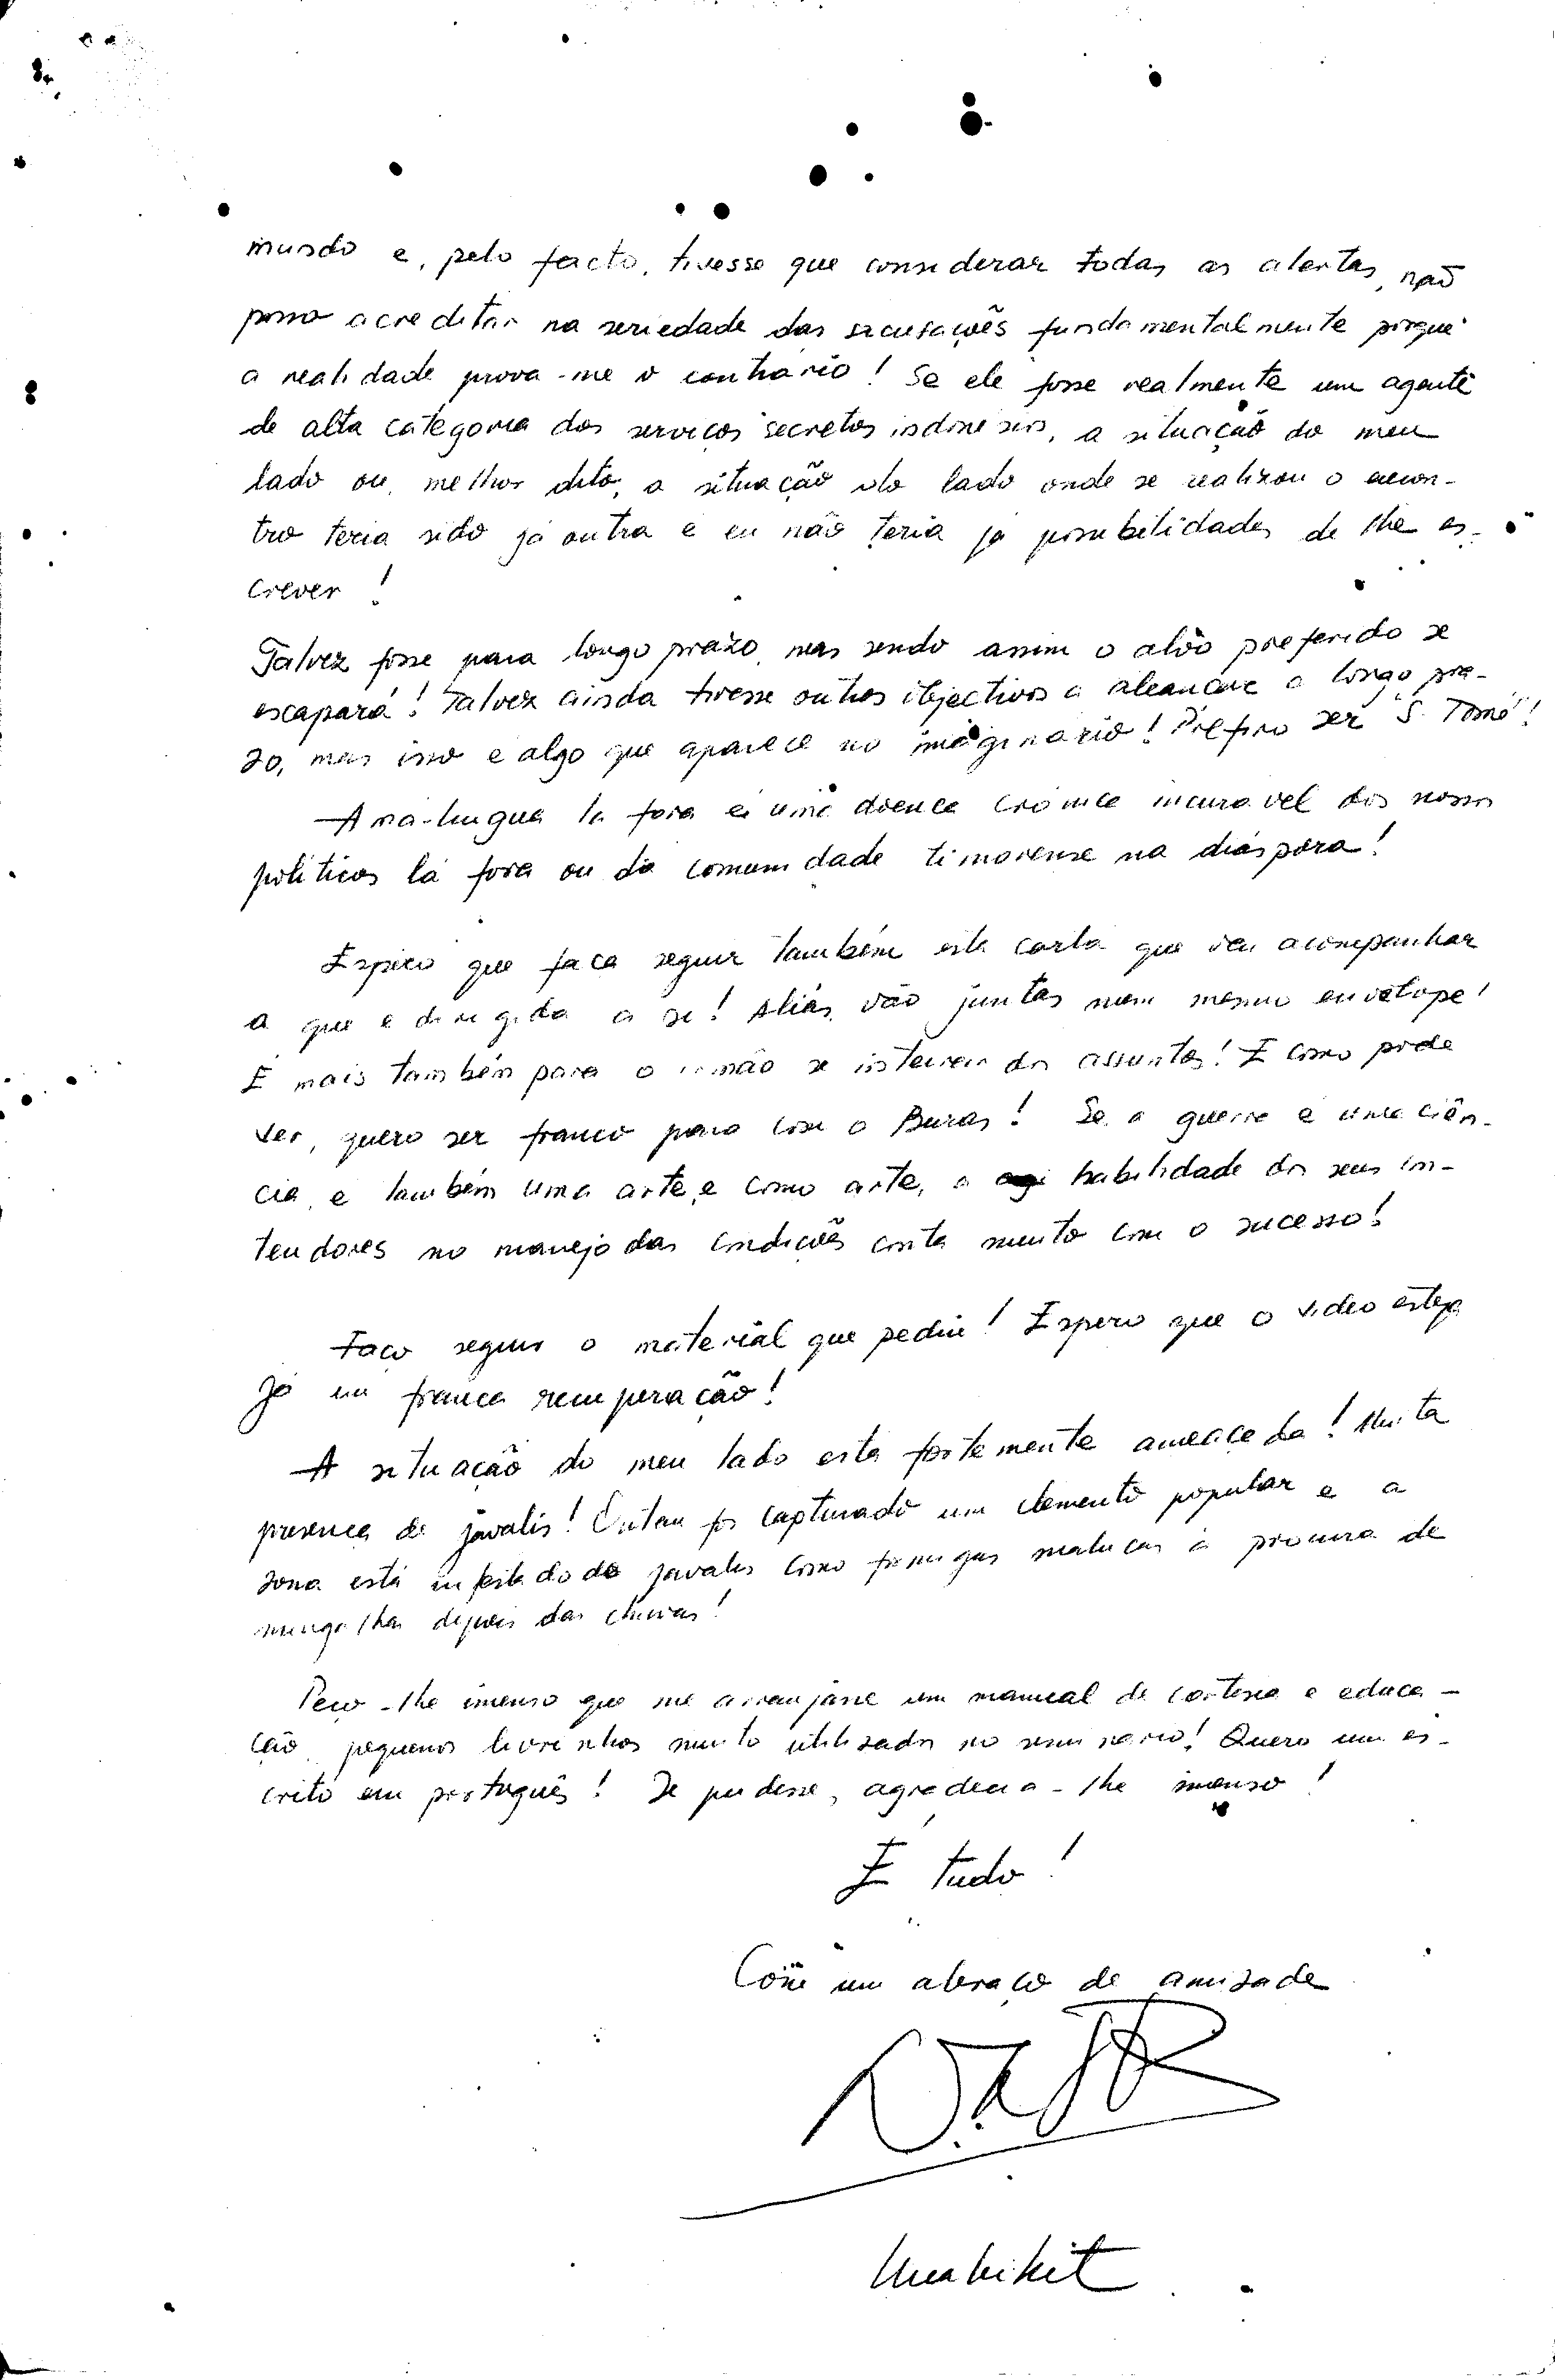 mundo e, pelo facto, tivesse que considerar todas as alertas, não
posso acreditar na seriedade das acusações fundamentalmente porque
a realidade prova-me o contrário! Se ele fosse realmente um agente
de alta categoria dos serviços secretos indonésios, a situação do meu
lado ou, melhor dito, a situação do lado onde se realizou o encon-
tro teria sido já outra e eu não teria já possibilidades de lhe es-
crever!
Talvez fosse para longo prazo, mas sendo assim o alvo preferido se
escapará! Talvez ainda tivesse outros objectivos a alcançar a longo pra-
zo, mas isso é algo que aparece no imaginário! Prefiro ser "S. Tomé"!
A má-lingua lá fora é uma doença crónica incurável dos nossos
políticos lá fora ou da comunidade timorense na diáspora!
Espero que faça seguir também esta carta que vai acompanhar
a que é dirigida a si! Aliás, vão juntas num mesmo envelope!
É mais também para o irmão se inteirar dos assuntos! E como pode
ver, quero ser franco para com o Buras! Se a guerra é uma ciên-
cia, é também uma arte, e como arte, a habilidade dos seus con-
tendores no manejo das condições conta muito com o sucesso!
Faço seguir o material que pediu! Espero que o video esteja
já em franca recuperação!
A situação do meu lado está fortemente ameaçada! Muita
presença de javalis! Ontem foi capturado um elemento popular e a
zona está infestado de javalis como formigas malucas à procura de
migalhas depois das chuvas!
Peço-lhe imenso que me arranjasse um manual de cortesia e educa-
ção, pequenos livrinhos muito utilizados no seminário! Quero um es-
crito em português! Se pudesse, agradecia-lhe imenso!
É tudo!
Com um abraço de amizade